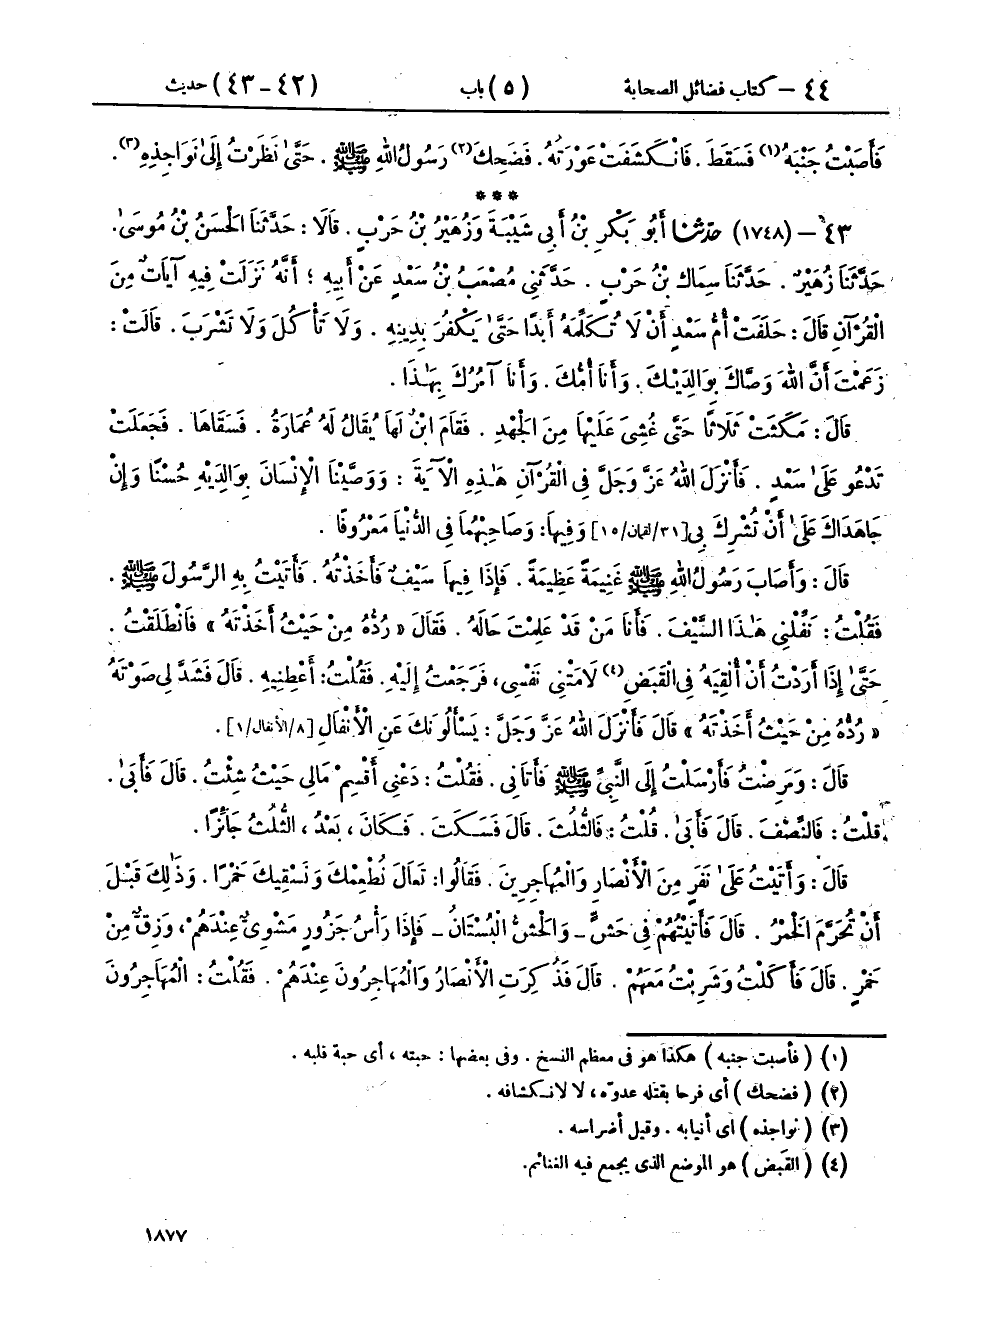 ٤٤ – كتاب فضائل الصحابة (٥) باب (٤٢-٤٣) حديث
فَأَصَبْتُ جَنْبَهُ(١) فَسَقَطَ . فَانْكَشَفَتْ عَوْرَتُهُ . فَضَحِكَ(٢) رَسُولُ اللهِ ﷺ . حَتَّىٰ نَظَرْتُ إِلَىٰ نَوَاجِذِهِ(٣).
***
٤٣ – (١٧٤٨) حَدَّثَنَا أَبُو بَكْرِ بْنُ أَبِي شَيْبَةَ وَزُهَيْرُ بْنُ حَرْبٍ . قَالَا : حَدَّثَنَا الْحَسَنُ بْنُ مُوسَىٰ.
حَدَّثَنَا زُهَيْرٌ . حَدَّثَنَا سِمَاكُ بْنُ حَرْبٍ . حَدَّثَنِي مُصْعَبُ بْنُ سَعْدٍ عَنْ أَبِيهِ ؛ أَنَّهُ نَزَلَتْ فِيهِ آيَاتٌ مِنَ
الْقُرْآنِ قَالَ : حَلَفَتْ أُمُّ سَعْدٍ أَنْ لَا تُكَلِّمَهُ أَبَدًا حَتَّىٰ يَكْفُرَ بِدِينِهِ . وَلَا تَأْكُلَ وَلَا تَشْرَبَ . قَالَتْ :
زَعَمْتَ أَنَّ اللهَ وَصَّاكَ بِوَالِدَيْكَ . وَأَنَا أُمُّكَ . وَأَنَا آمُرُكَ بِهَٰذَا .
قَالَ : مَكَثَتْ ثَلَاثًا حَتَّىٰ غُشِيَ عَلَيْهَا مِنَ الْجَهْدِ . فَقَامَ ابْنٌ لَهَا يُقَالُ لَهُ عُمَارَةُ . فَسَقَاهَا . فَجَعَلَتْ
تَدْعُو عَلَىٰ سَعْدٍ . فَأَنْزَلَ اللهُ عَزَّ وَجَلَّ فِي الْقُرْآنِ هَٰذِهِ الْآيَةَ : وَوَصَّيْنَا الْإِنْسَانَ بِوَالِدَيْهِ حُسْنًا وَإِنْ
جَاهَدَاكَ عَلَىٰ أَنْ تُشْرِكَ بِي [٣١/لقمان/١٥] وَفِيهَا: وَصَاحِبْهُمَا فِي الدُّنْيَا مَعْرُوفًا .
قَالَ : وَأَصَابَ رَسُولُ اللهِ ﷺ غَنِيمَةً عَظِيمَةً . فَإِذَا فِيهَا سَيْفٌ فَأَخَذْتُهُ . فَأَتَيْتُ بِهِ الرَّسُولَ ﷺ .
فَقُلْتُ : نَفِّلْنِي هَٰذَا السَّيْفَ . فَأَنَا مَنْ قَدْ عَلِمْتَ حَالَهُ . فَقَالَ « رُدُّهُ مِنْ حَيْثُ أَخَذْتَهُ » فَانْطَلَقْتُ .
حَتَّىٰ إِذَا أَرَدْتُ أَنْ أُلْقِيَهُ فِي الْقَبَضِ(٤) لَامَتْنِي نَفْسِي، فَرَجَعْتُ إِلَيْهِ. فَقُلْتُ: أَعْطِنِيهِ . قَالَ فَشَدَّ لِي صَوْتَهُ
« رُدُّهُ مِنْ حَيْثُ أَخَذْتَهُ » قَالَ فَأَنْزَلَ اللهُ عَزَّ وَجَلَّ : يَسْأَلُونَكَ عَنِ الْأَنْفَالِ [٨/الأنفال/١].
قَالَ : وَمَرِضْتُ فَأَرْسَلْتُ إِلَى النَّبِيِّ ﷺ فَأَتَانِي . فَقُلْتُ : دَعْنِي أَقْسِمْ مَالِي حَيْثُ شِئْتُ . قَالَ فَأَبَىٰ .
قُلْتُ : فَالنِّصْفَ . قَالَ فَأَبَىٰ . قُلْتُ : فَالثُّلُثَ . قَالَ فَسَكَتَ . فَكَانَ ، بَعْدُ ، الثُّلُثُ جَائِزًا .
قَالَ : وَأَتَيْتُ عَلَىٰ نَفَرٍ مِنَ الْأَنْصَارِ وَالْمُهَاجِرِينَ . فَقَالُوا: تَعَالَ نُطْعِمْكَ وَنَسْقِيكَ خَمْرًا . وَذَٰلِكَ قَبْلَ
أَنْ تُحَرَّمَ الْخَمْرُ . قَالَ فَأَتَيْتُهُمْ فِي حَشٍّ – وَالْحَشُّ الْبُسْتَانُ – فَإِذَا رَأْسُ جَزُورٍ مَشْوِيٌّ عِنْدَهُمْ، وَزِقٌّ مِنْ
خَمْرٍ . قَالَ فَأَكَلْتُ وَشَرِبْتُ مَعَهُمْ . قَالَ فَذُكِرَتِ الْأَنْصَارُ وَالْمُهَاجِرُونَ عِنْدَهُمْ . فَقُلْتُ : الْمُهَاجِرُونَ
(١) ( فأصبت جنبه ) هكذا هو فى معظم النسخ . وفى بعضها : حبته ، أى حبة قلبه .
(٢) ( فضحك ) أى فرحا بقتله عدوّه، لا لانكشافه .
(٣) ( نواجذه ) أى أنيابه . وقيل أضراسه .
(٤) ( القَبَض ) هو الموضع الذى يجمع فيه الغنائم.
١٨٧٧